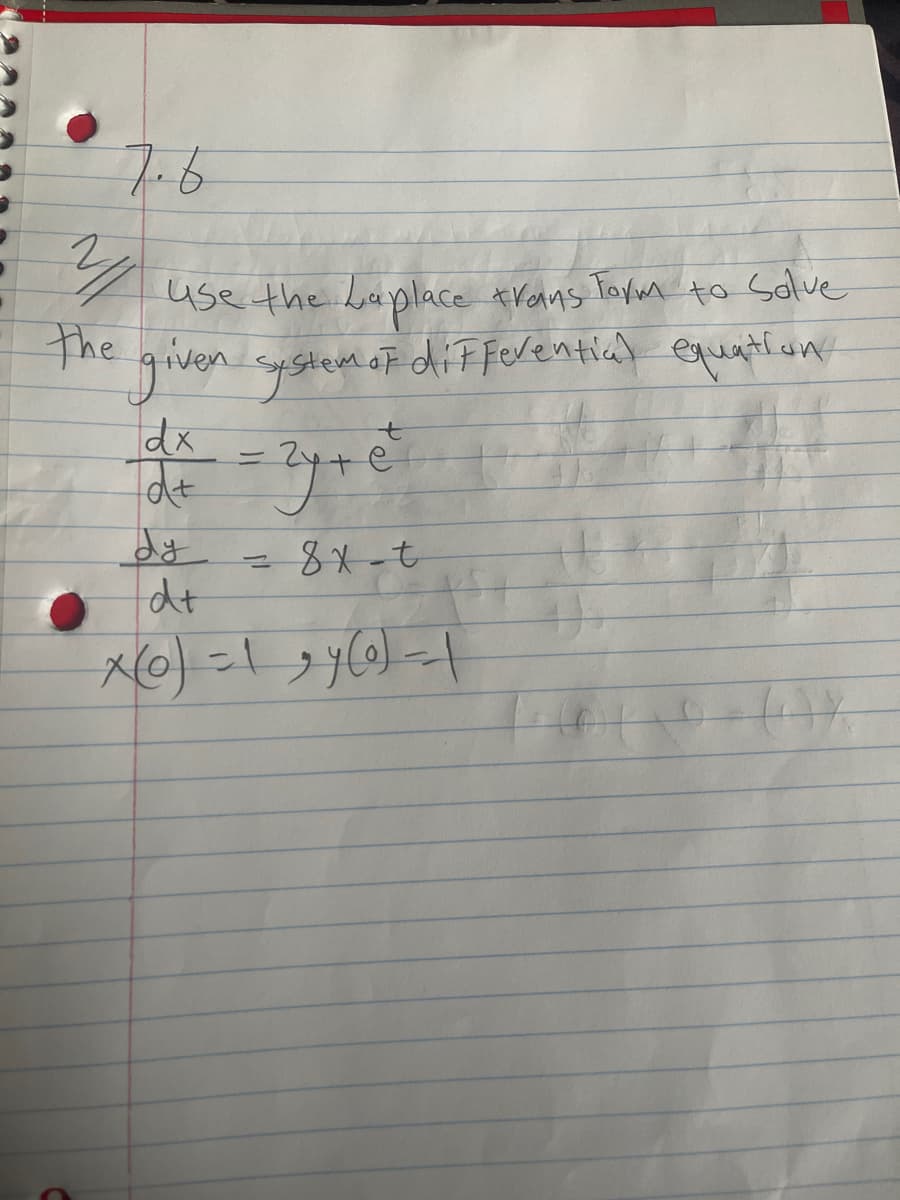 7.6
2// use the Laplace transform to solve
the given system of differential equation
dx/dt = 2y + e^t
dy/dt = 8x - t
x(0) = 1, y(0) = 1